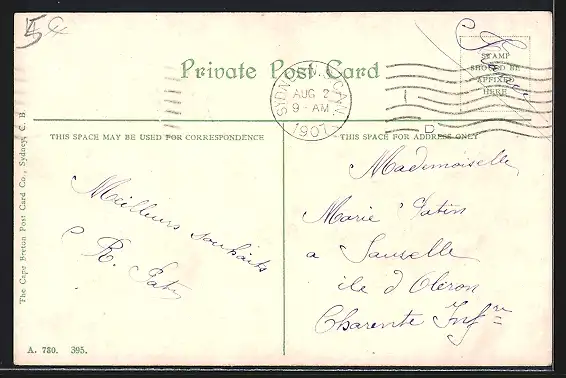 5
Private Post Card
SYDNEY, N.S. CAN.
AUG 2
9 - AM
1907
STAMP
SHOULD BE
AFFIXED
HERE
D
THIS SPACE MAY BE USED FOR CORRESPONDENCE
THIS SPACE FOR ADDRESS ONLY
Meilleurs souhaits
R.
Mademoiselle
Marie
a Sauzelle
ile d Oleron
Charente Infre
The Cape Breton Post Card Co., Sydney, C. B.
A. 780. 395.